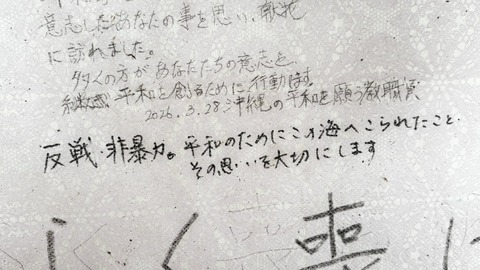 意志したあなたの事を思い、献花
に訪れました。
多くの方があなたたちの意志を
平和を創るために行動します
2026.3.28 沖縄の平和を願う教職員
反戦・非暴力。平和のためにこの海へこられたこと、
その思いを大切にします
く 喪